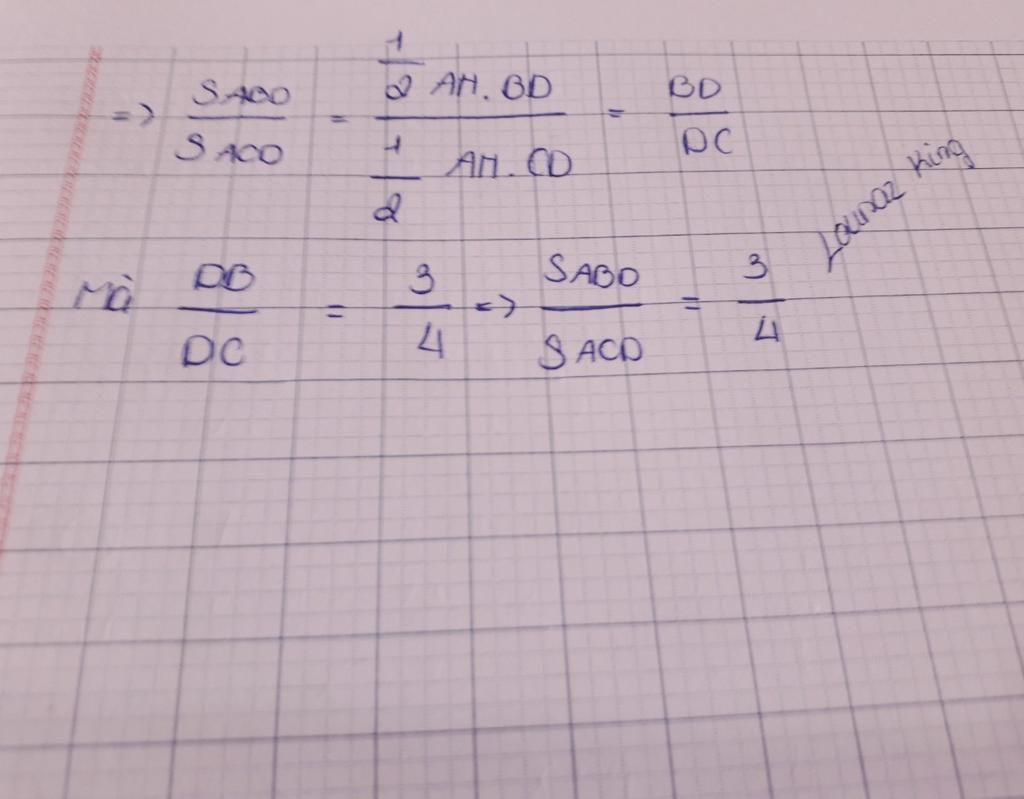 => SABD/SACD = (1/2 AH.BD)/(1/2 AH.CD) = BD/DC
Mà DB/DC = 3/4 => SABD/SACD = 3/4
King